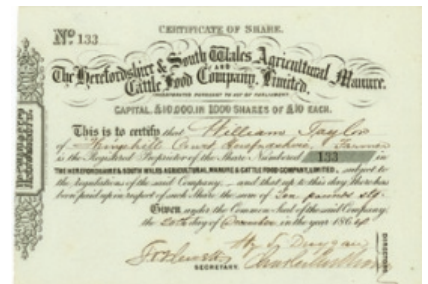 CERTIFICATE OF SHARE.
No. 133
The Herefordshire & South Wales Agricultural Manure.
AND
Cattle Food Company, Limited.
INCORPORATED PURSUANT TO ACT OF PARLIAMENT
CAPITAL, £10,000, IN 1000 SHARES OF £10 EACH.
This is to certify that William Taylor
of Court, Herefordshire, Farmer
is the Registered Proprietor of the Share Numbered 133 in
THE HEREFORDSHIRE & SOUTH WALES AGRICULTURAL MANURE & CATTLE FOOD COMPANY, LIMITED, subject to
the regulations of the said Company, and that up to this day there has
been paid up in respect of such Share the sum of Ten pounds
Given under the Common Seal of the said Company
the 20th day of December in the year 1864
SECRETARY.
DIRECTORS